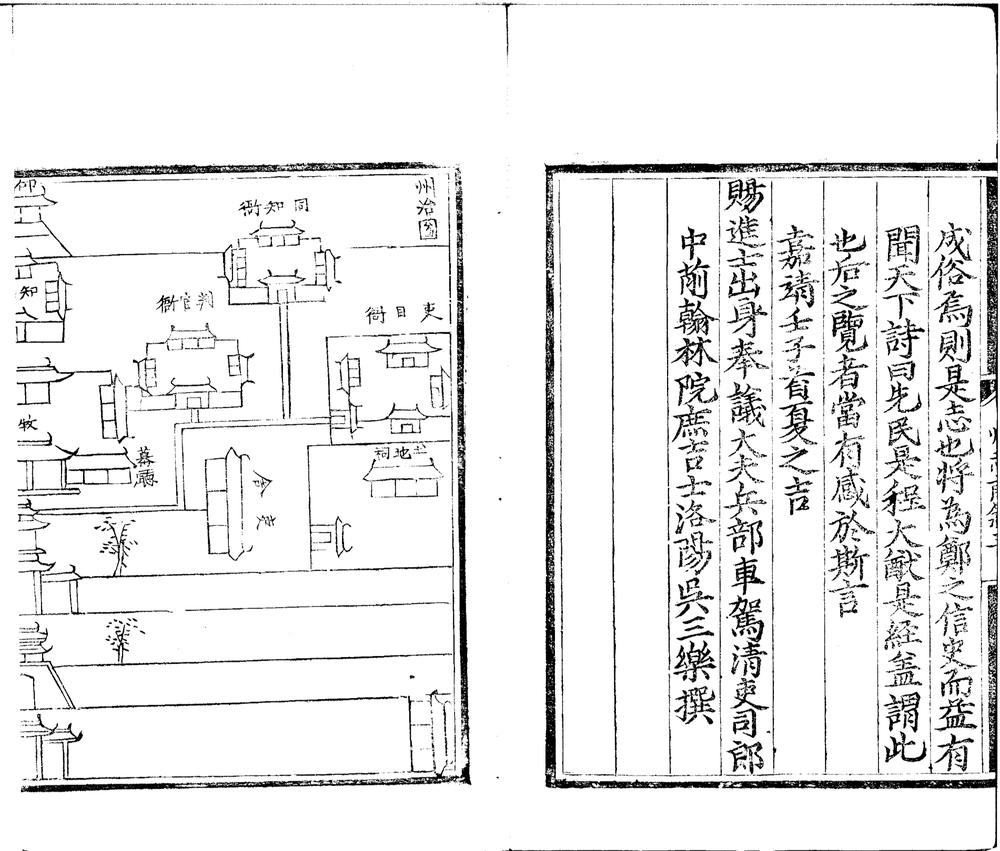 成俗焉則是志也将為鄭之信史而益有
聞天下詩曰先民是程大猷是経盖謂此
也后之覽者當有感於斯言
嘉靖壬子首夏之吉
賜進士出身奉議大夫兵部車駕清吏司郎
中前翰林院庶吉士洛陽吳三樂撰
州治圖
同知衙
判官衙
吏目衙
土地祠
幕廳
仰
知
牧